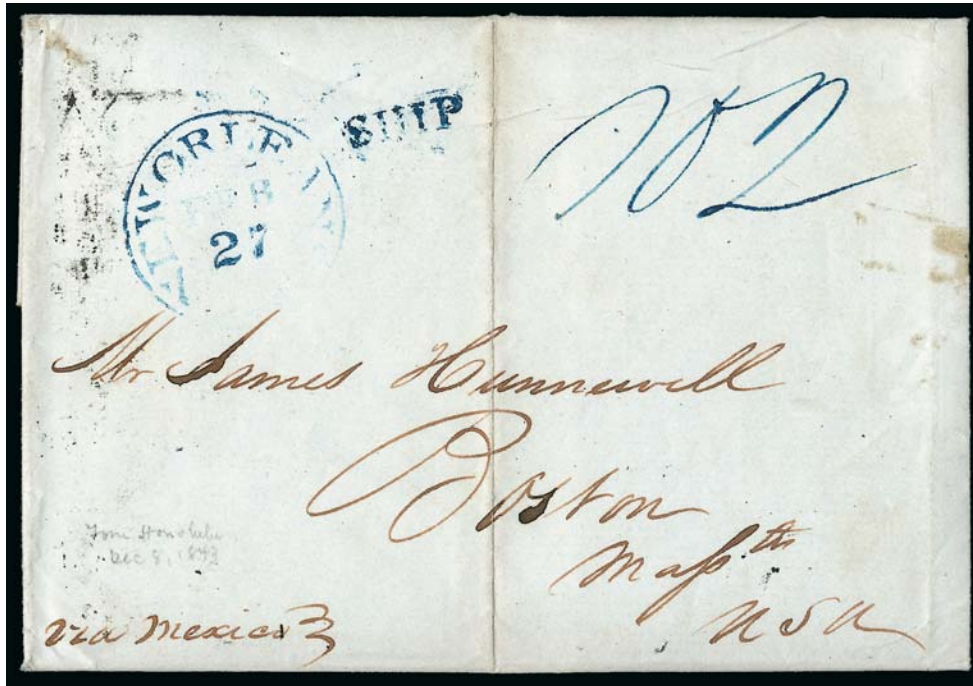 NEW ORLEAN
FEB
27
SHIP
102
Mr James Hunnewell
Boston
Mass th
USA
from Honolulu
Dec 8, 1843
via Mexico